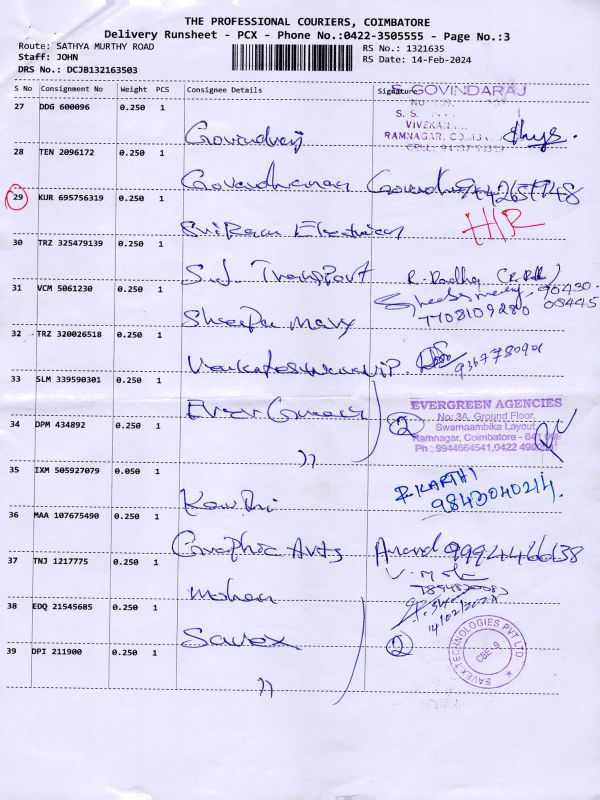 THE PROFESSIONAL COURIERS, COIMBATORE
Delivery Runsheet - PCX - Phone No.:0422-3505555 - Page No.:3
Route: SATHYA MURTHY ROAD
RS No.: 1321635
Staff: JOHN
RS Date: 14-Feb-2024
DRS No.: DCJB132163503
S No Consignment No Weight PCS Consignee Details Signature
S. GOVINDARAJ
27 DDG 600096 0.250 1
S. S.
RAMNAGAR,
Govindraj
28 TEN 2096172 0.250 1
Govardhanan
29 KUR 695756319 0.250 1
SriRam Electrical
30 TRZ 325479139 0.250 1
S.J. Transport R. Radha
31 VCM 5061230 0.250 1
7708109280
Sheepa Mary
32 TRZ 320026518 0.250 1
9367780901
33 SLM 339590301 0.250 1
EVERGREEN AGENCIES
Ever Green
No: 3A, Ground Floor,
34 DPM 434892 0.250 1
2
Swarnaambika Layout,
Ramnagar, Coimbatore -
Ph : 9944664541,0422
35 IXM 505927079 0.050 1
R. KARTHI
9843040214.
36 MAA 107675490 0.250 1
Graphic Arts Anand 9994466638
37 TNJ 1217775 0.250 1
Mohan
38 EDQ 21545685 0.250 1
14/02/2024
Savex
2
SAVEX TECHNOLOGIES PVT LTD
CBE-9
39 DPI 211900 0.250 1